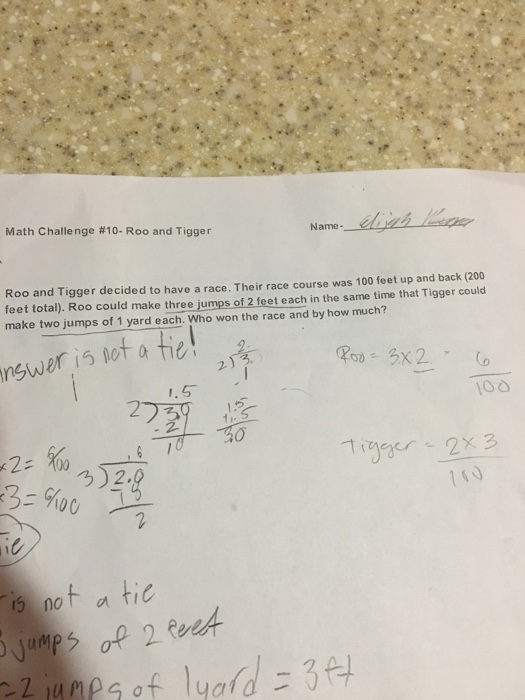 Math Challenge #10- Roo and Tigger
Name- Elijah
Roo and Tigger decided to have a race. Their race course was 100 feet up and back (200
feet total). Roo could make three jumps of 2 feet each in the same time that Tigger could
make two jumps of 1 yard each. Who won the race and by how much?
nswer is not a tie!
Roo = 3×2
6
100
1.5
2)30
-2
10
2)3
1
1.5
1.5
30
Tigger = 2×3
100
×2 = 6/100
×3 = 6/100
.6
3)2.0
18
2
ie
is not a tie
3 jumps of 2 feet
-2 jumps of 1 yard = 3ft